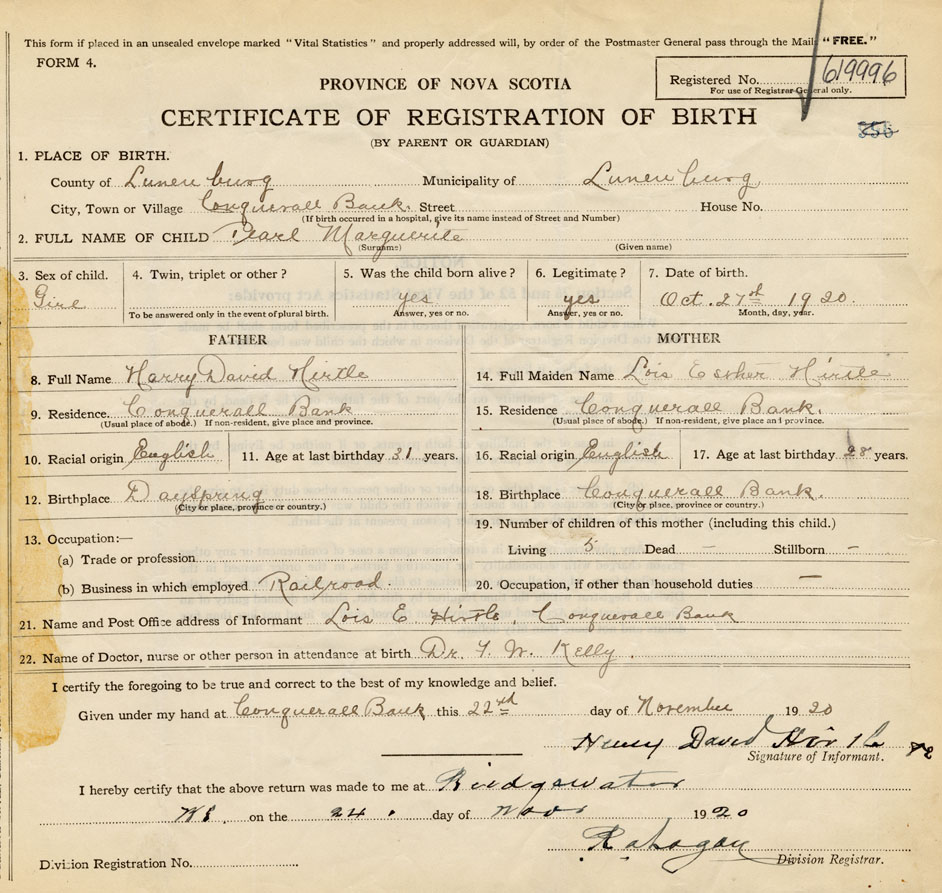 This form if placed in an unsealed envelope marked "Vital Statistics" and properly addressed will, by order of the Postmaster General pass through the Mail "FREE."
FORM 4.
PROVINCE OF NOVA SCOTIA
Registered No. 619996
For use of Registrar-General only.
CERTIFICATE OF REGISTRATION OF BIRTH
356
(BY PARENT OR GUARDIAN)
1. PLACE OF BIRTH.
County of Lunenburg Municipality of Lunenburg
City, Town or Village Conquerall Bank. Street House No.
(If birth occurred in a hospital, give its name instead of Street and Number)
2. FULL NAME OF CHILD Pearl Marguerite
(Surname) (Given name)
3. Sex of child. 4. Twin, triplet or other? 5. Was the child born alive? 6. Legitimate? 7. Date of birth.
Girl yes yes Oct. 27th 1920.
To be answered only in the event of plural birth. Answer, yes or no. Answer, yes or no. Month, day, year.
FATHER MOTHER
8. Full Name Harry David Hirtle 14. Full Maiden Name Lois Esther Hirtle
9. Residence. Conquerall Bank 15. Residence Conquerall Bank.
(Usual place of abode.) If non-resident, give place and province. (Usual place of abode.) If non-resident, give place and province.
10. Racial origin English 11. Age at last birthday 31 years. 16. Racial origin English 17. Age at last birthday 28 years.
12. Birthplace Dayspring 18. Birthplace Conquerall Bank.
(City or place, province or country.) (City or place, province or country.)
13. Occupation:— 19. Number of children of this mother (including this child.)
(a) Trade or profession Living 5 Dead – Stillborn –
(b) Business in which employed Railroad. 20. Occupation, if other than household duties —
21. Name and Post Office address of Informant Lois E Hirtle, Conquerall Bank
22. Name of Doctor, nurse or other person in attendance at birth Dr. Kelly.
I certify the foregoing to be true and correct to the best of my knowledge and belief.
Given under my hand at Conquerall Bank this 22nd day of November 1920
David Hirtle
Signature of Informant.
I hereby certify that the above return was made to me at Bridgewater
N.S. on the 24. day of Nov 1920
Division Registration No. Division Registrar.